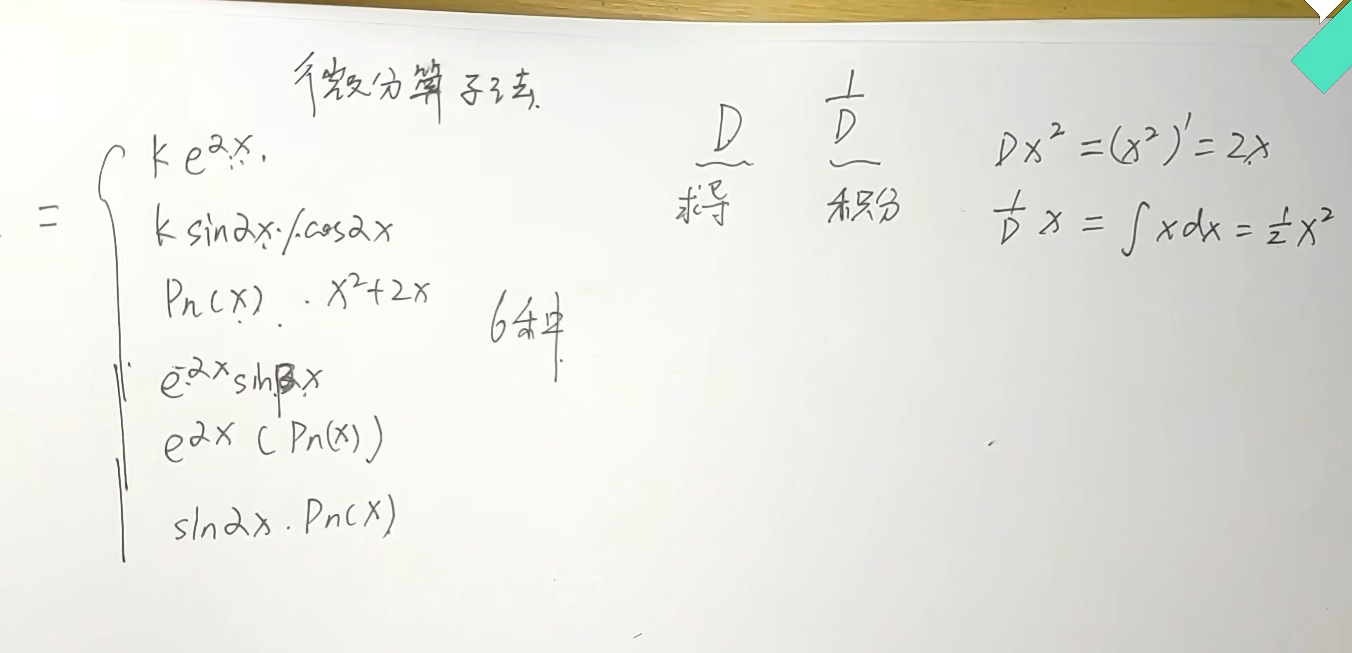 微分算子法
= { k e^{αx}.
k sinαx / cosαx
Pn(x) . x²+2x
e^{αx} sinβx
e^{αx} (Pn(x))
sinαx . Pn(x)
6种
D 1/D
求导 积分
Dx² = (x²)' = 2x
1/D x = ∫xdx = 1/2 x²